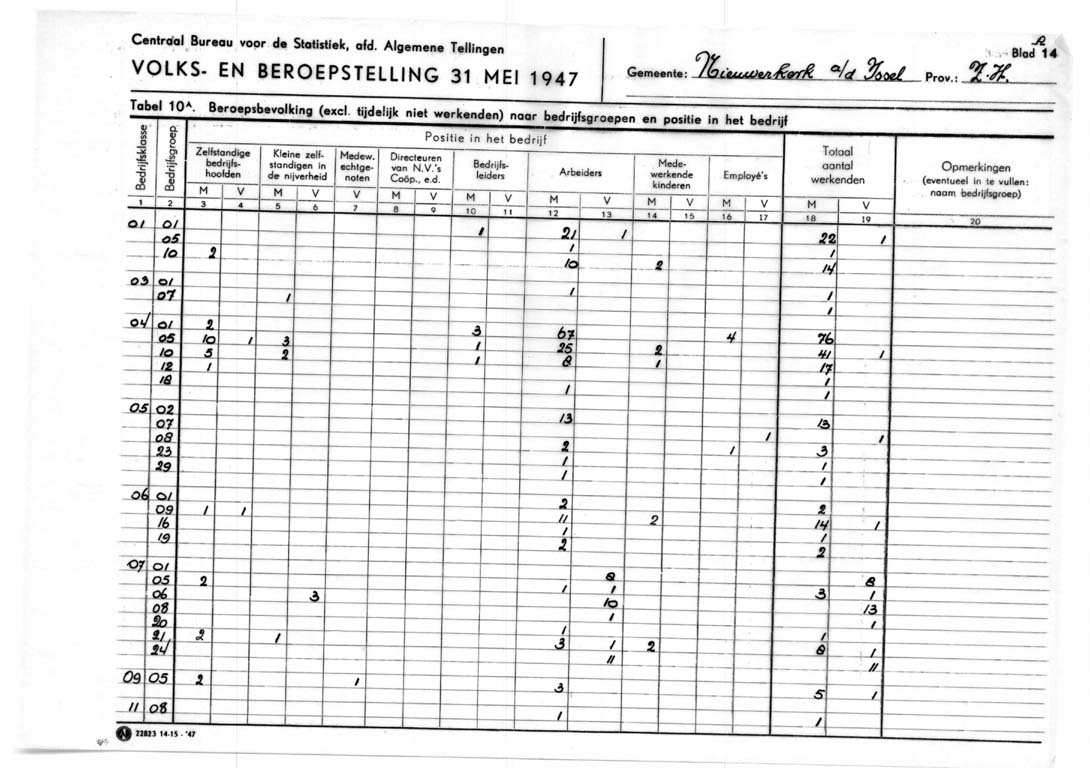 R
Blad 14
Centraal Bureau voor de Statistiek, afd. Algemene Tellingen
VOLKS- EN BEROEPSTELLING 31 MEI 1947
Gemeente: Nieuwerkerk a/d IJssel Prov.: Z.H.
Tabel 10A. Beroepsbevolking (excl. tijdelijk niet werkenden) naar bedrijfsgroepen en positie in het bedrijf
Bedrijfsklasse Bedrijfsgroep Positie in het bedrijf Totaal aantal werkenden Opmerkingen (eventueel in te vullen: naam bedrijfsgroep)
Zelfstandige bedrijfs-hoofden Kleine zelf-standigen in de nijverheid Medew. echtge-noten Directeuren van N.V.'s Coöp., e.d. Bedrijfs-leiders Arbeiders Mede-werkende kinderen Employé's
M V M V V M V M V M V M V M V M V
1 2 3 4 5 6 7 8 9 10 11 12 13 14 15 16 17 18 19 20
01 01 1 21 1 22 1
05 1 1
10 2 10 2 14
03 01 1 1
07 1 1
04 01 2 3 67 4 76
05 10 1 3 1 25 2 41 1
10 5 2 1 8 1 17
12 1 1
18 1 1
05 02 13 13
07 1 1
08 2 1 3
23 1 1
29 1 1
06 01 2 2
09 1 1 11 2 14 1
16 1 1
19 2 2
07 01 8 8
05 2 1 1 3 1
06 3 10 13
08 1 1
20 1 1
21 2 1 3 1 2 8 1
24 11 11
09 05 2 1 3 5 1
11 08 1 1
22823 14-15 - '47